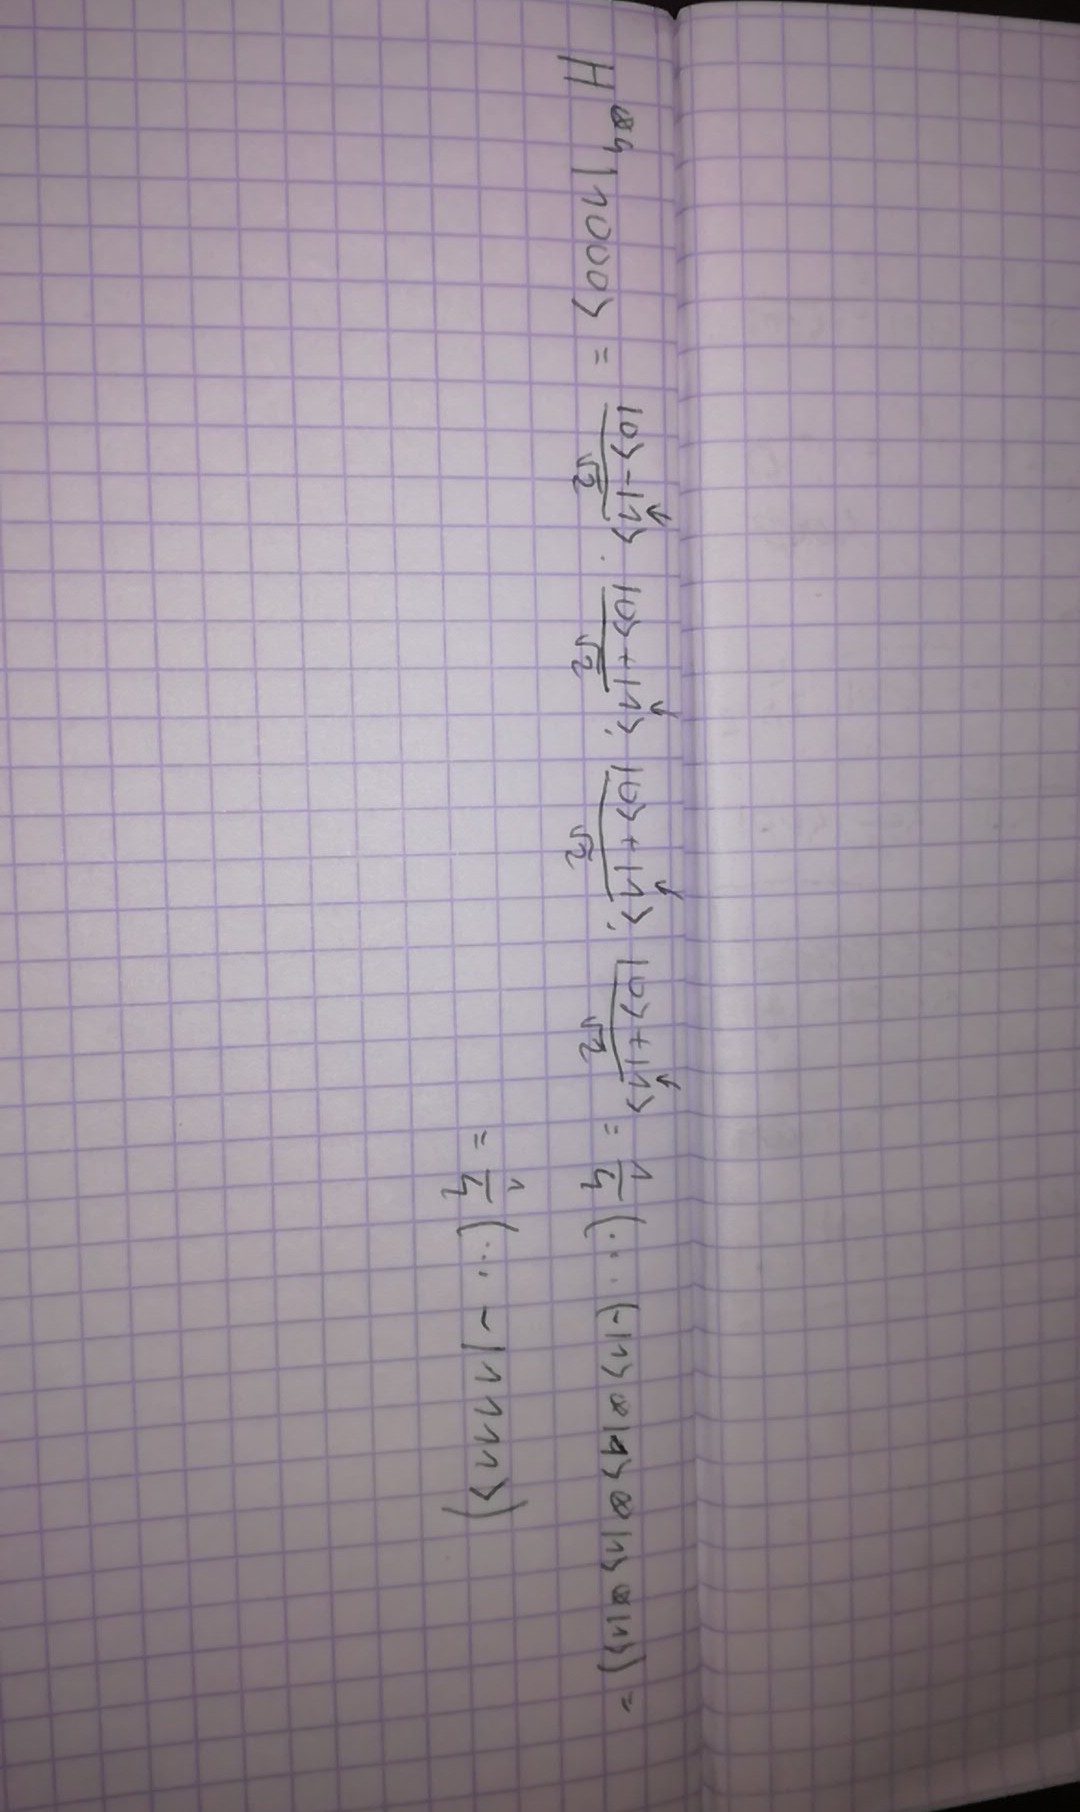 H^{⊗4} |1000⟩ = \frac{|0⟩-|1⟩}{√2} · \frac{|0⟩+|1⟩}{√2} · \frac{|0⟩+|1⟩}{√2} · \frac{|0⟩+|1⟩}{√2} = \frac{1}{4} (... (-|1⟩ ⊗ |1⟩ ⊗ |1⟩ ⊗ |1⟩) =
= \frac{1}{4} (... - |1111⟩)